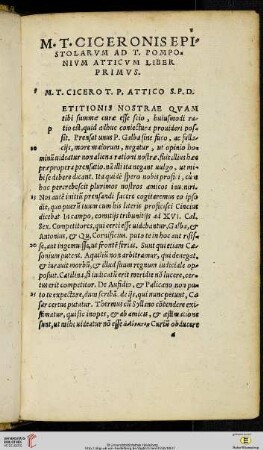 M. T. CICERONIS EPI
STOLARVM AD T. POMPO
NIVM ATTICVM LIBER
PRIMVS.
M. T. CICERO T. P. ATTICO S. P. D.
ETITIONIS NOSTRAE QVAM
tibi summæ curæ esse scio, huiusmodi ra
p
tio est, quod adhuc coniectura prouideri pos
sit. Prensat unus P. Galba sine fuco, ac falla
cijs, more maiorum, negatur, ut opinio ho
minũ est
debere dicunt. Ita quiddã spero nobis profici, cũ
hoc percrebescit plurimos nostros amicos inueniri.
Nos autẽ initiũ prensandi facere cogitaramus eo ipso
die, quo puerũ tuum cum his literis proficisci Cincius
dicebat In campo, comitijs tribunitijs ad XVI. Cal.
Sex. Competitores, qui certi esse uideantur, Galba, &
Antonius, & Qu. Cornificius. puto te in hoc aut risis
se, aut ingemuisse, ut frontẽ ferias. Sunt qui etiam Cæ
sonium putent. Aquiliũ non arbitramur, qui denegat,
& iurauit morbũ, & illud suum regnum iudiciale op
posuit. Catilina, si iudicatũ erit meridie nõ lucere, cer
tus erit competitor. De Aufidio, & Palicano non pu
to te expectare, dum scribã. de ijs, qui nunc petunt, Cæ
sar certus putatur. Thermus cũ Syllano cõtendere exi
stimatur, qui sic inopes, & ab amicis, & æstimatione
sunt, ut mihi uideatur nõ esse ἀδύνατον Curiũ obducere